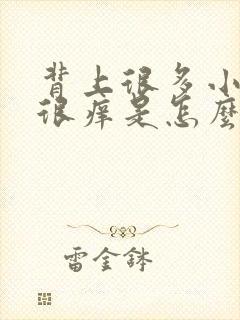 背上很多小
很痒是怎麼
雷金鉢